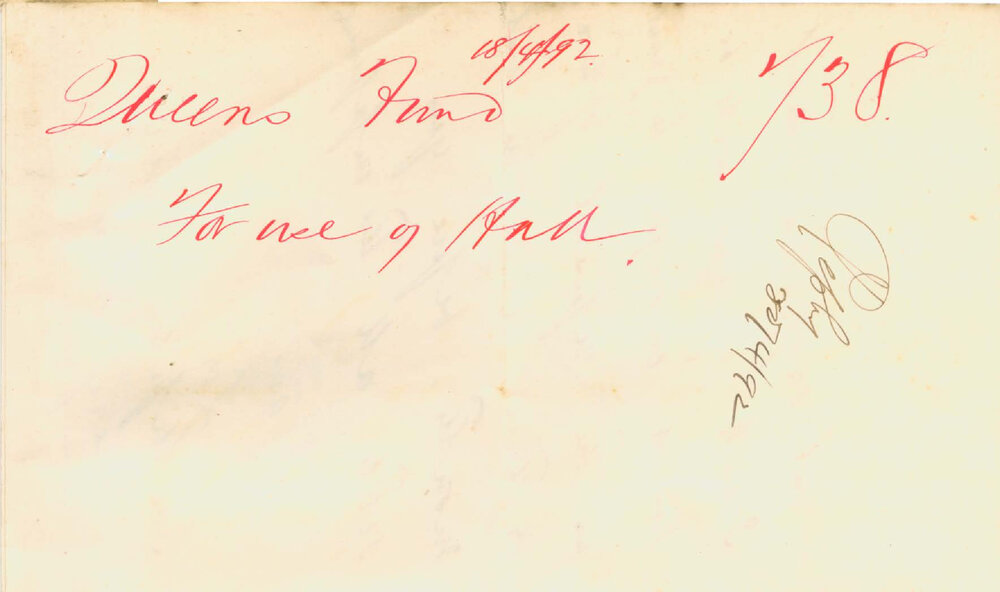 18/4/92.
Queens Fund 738.
For use of Hall.
Reply
20/4/92